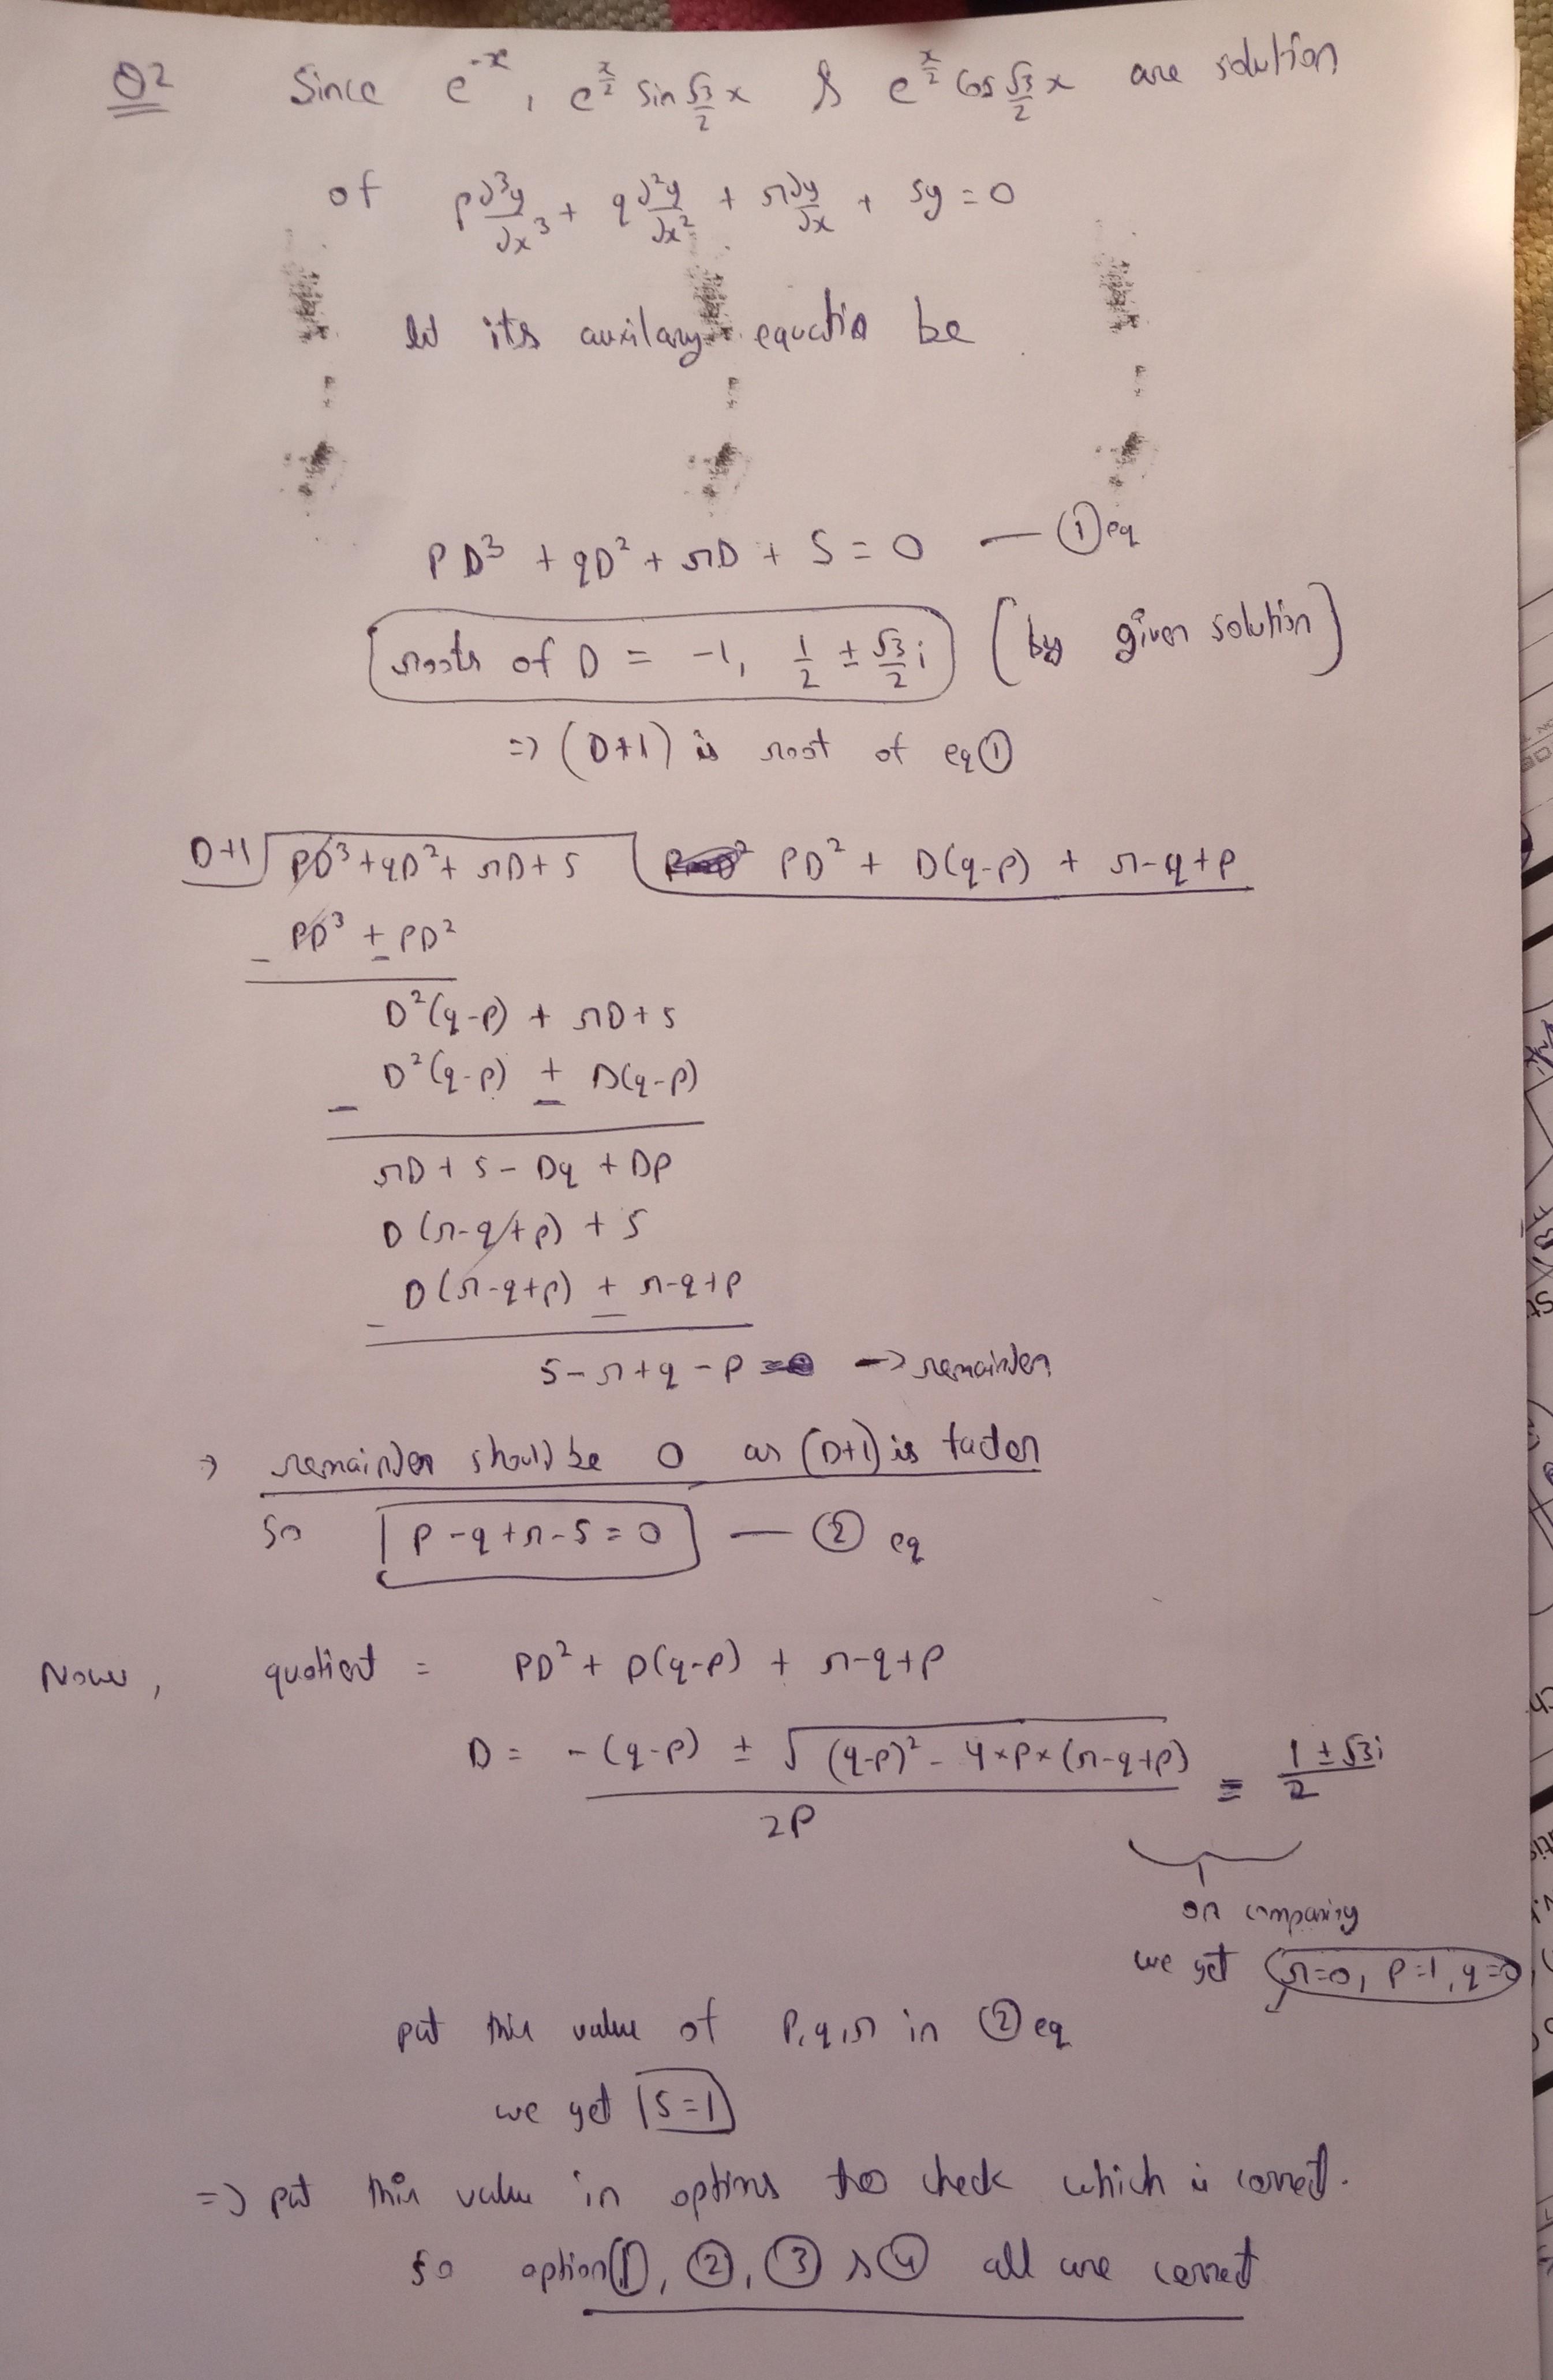 Q2 Since e^-x, e^x/2 sin √3/2 x & e^x/2 cos √3/2 x are solution
of p d³y/dx³ + q d²y/dx² + r dy/dx + sy = 0
let its auxilary equation be
PD³ + qD² + rD + S = 0 — ① eq
roots of D = -1, 1/2 ± √3/2 i (by given solution)
=> (D+1) is root of eq ①
D+1 ) PD³ + qD² + rD + s ( PD² + D(q-p) + r-q+p
- PD³ ± PD²
D²(q-p) + rD + s
- D²(q-p) ± D(q-p)
rD + s - Dq + Dp
D(r-q+p) + s
- D(r-q+p) ± r-q+p
s-r+q-p -> remainder
→ remainder should be 0 as (D+1) is factor
so p-q+r-s=0 — ② eq
Now, quotient = PD² + D(q-p) + r-q+p
D = -(q-p) ± √(q-p)² - 4×p×(r-q+p) / 2P = 1 ± √3i / 2
on comparing
we get r=0, p=1, q=0
put this value of p,q,r in ② eq
we get s=1
=> put this value in options too check which is correct.
so option ①, ②, ③ & ④ all are correct